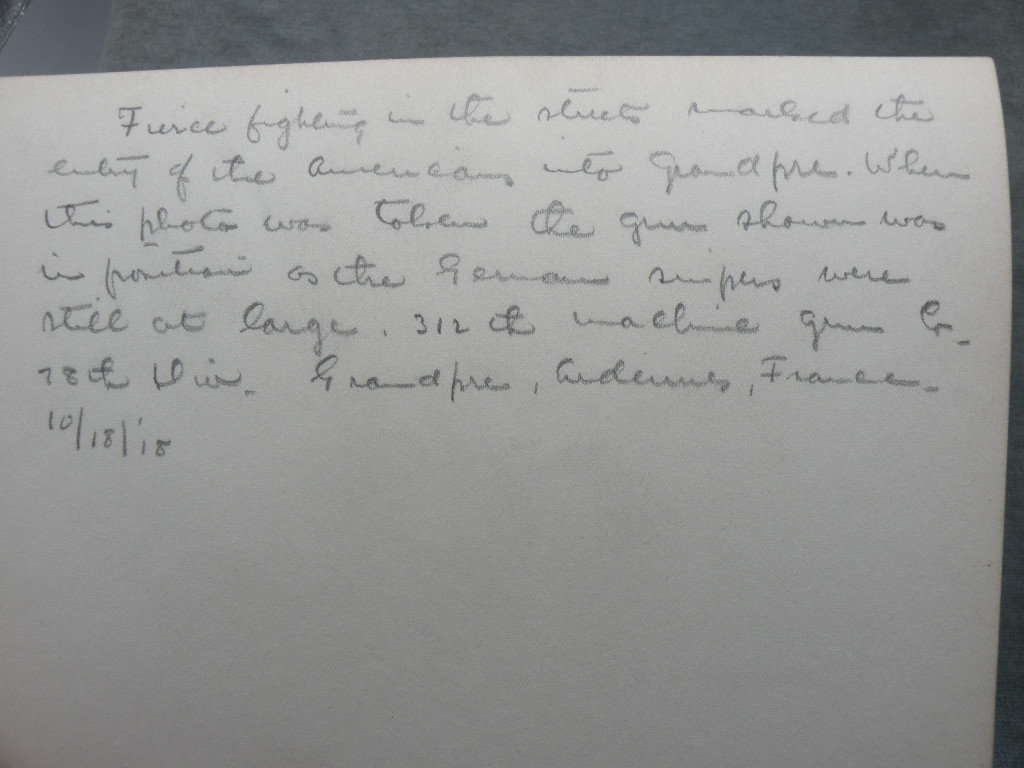 Fierce fighting in the streets marked the
entry of the Americans into Grandpre. When
this photo was taken the gun shown was
in position as the German snipers were
still at large. 312th machine gun Co-
78th Div. Grandpre, Ardennes, France-
10/18/'18